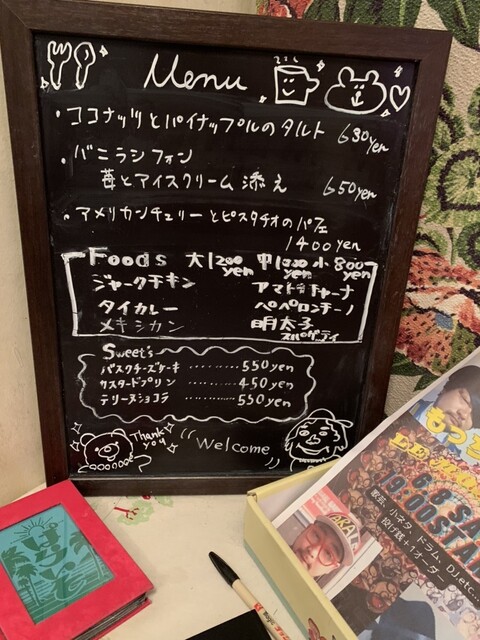 Menu
・ココナッツとパイナップルのタルト 630yen
・バニラシフォン
苺とアイスクリーム添え 650yen
・アメリカンチェリーとピスタチオのパフェ
1400yen
Foods 大1200yen 中1000yen 小800yen
ジャークチキン アマトリチャーナ
タイカレー ペペロンチーノ
メキシカン 明太子スパゲッティ
Sweet's
バスクチーズケーキ ········ 550yen
カスタードプリン ········ 450yen
テリーヌショコラ ········ 550yen
Thank you
"Welcome"
もっ
6.8 SA
19:00START
歌芸、小ネタ、ドラム、DJ,etc...
投げ銭+1オーダー